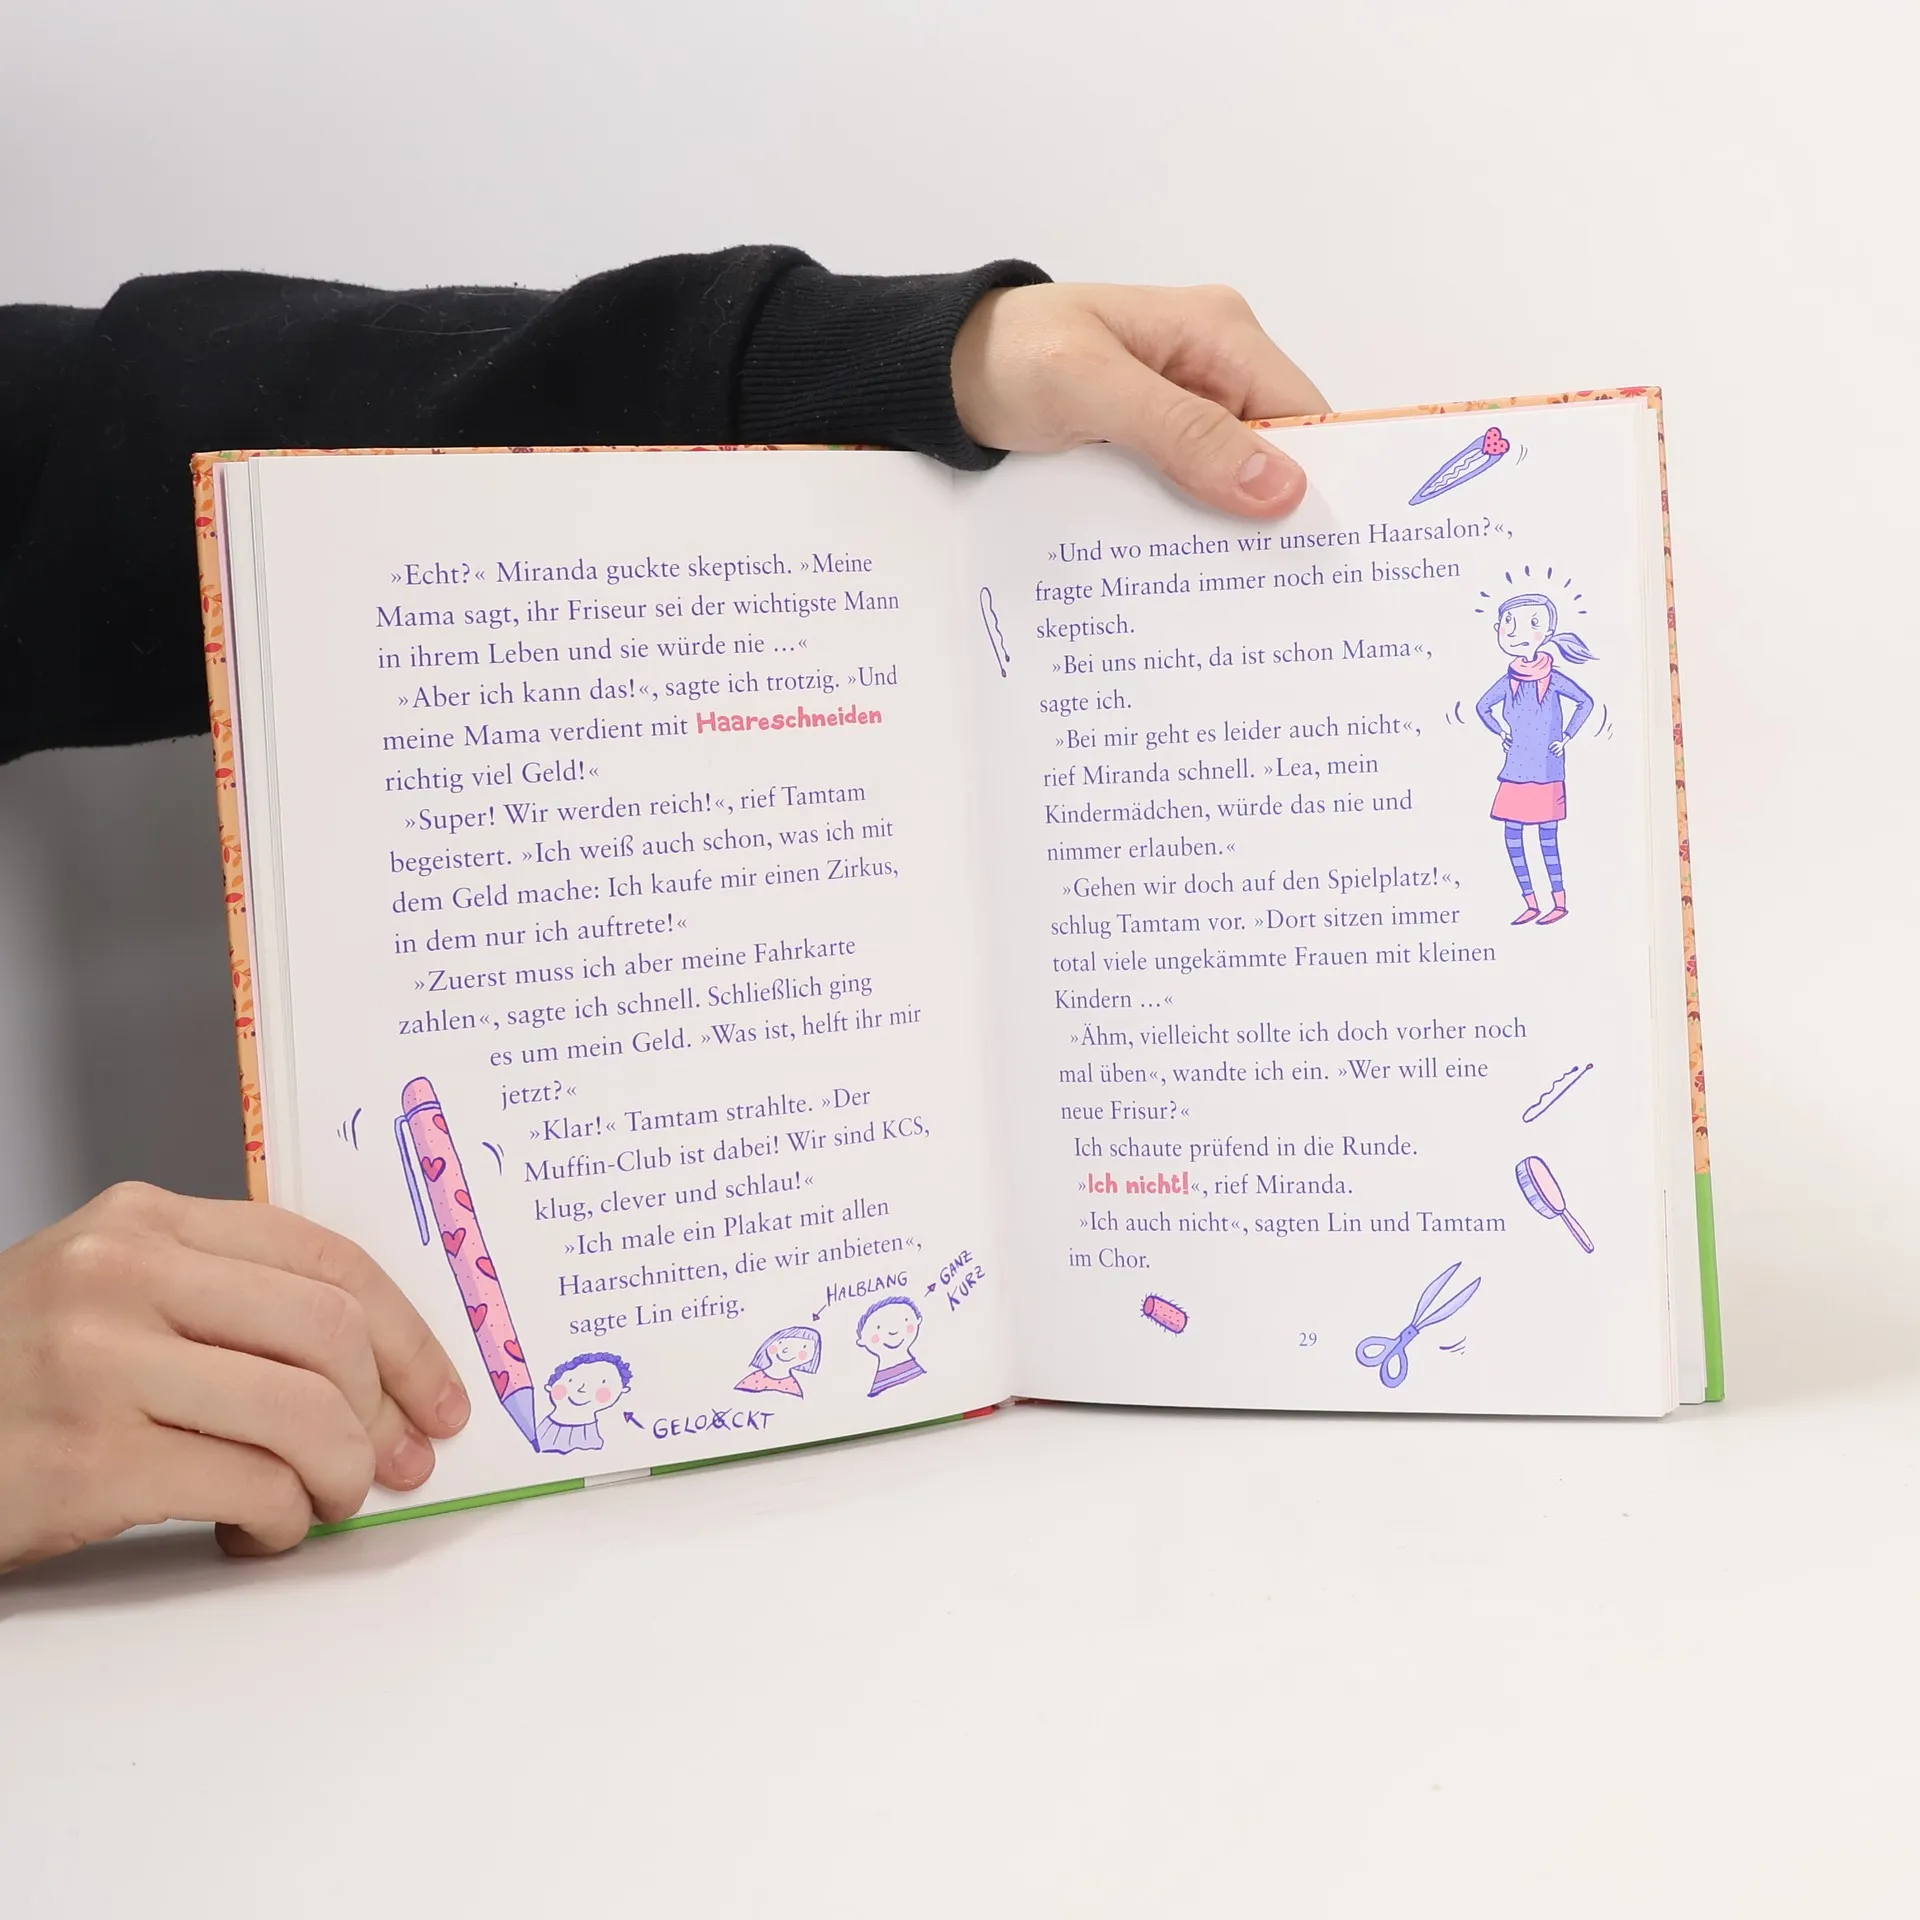 »Echt?« Miranda guckte skeptisch. »Meine
Mama sagt, ihr Friseur sei der wichtigste Mann
in ihrem Leben und sie würde nie ...«
»Aber ich kann das!«, sagte ich trotzig. »Und
meine Mama verdient mit Haareschneiden
richtig viel Geld!«
»Super! Wir werden reich!«, rief Tamtam
begeistert. »Ich weiß auch schon, was ich mit
dem Geld mache: Ich kaufe mir einen Zirkus,
in dem nur ich auftrete!«
»Zuerst muss ich aber meine Fahrkarte
zahlen«, sagte ich schnell. Schließlich ging
es um mein Geld. »Was ist, helft ihr mir
jetzt?«
»Klar!« Tamtam strahlte. »Der
Muffin-Club ist dabei! Wir sind KCS,
klug, clever und schlau!«
»Ich male ein Plakat mit allen
Haarschnitten, die wir anbieten«,
sagte Lin eifrig.
HALBLANG
GANZ
KURZ
GELOCKT
»Und wo machen wir unseren Haarsalon?«,
fragte Miranda immer noch ein bisschen
skeptisch.
»Bei uns nicht, da ist schon Mama«,
sagte ich.
»Bei mir geht es leider auch nicht«,
rief Miranda schnell. »Lea, mein
Kindermädchen, würde das nie und
nimmer erlauben.«
»Gehen wir doch auf den Spielplatz!«,
schlug Tamtam vor. »Dort sitzen immer
total viele ungekämmte Frauen mit kleinen
Kindern ...«
»Ähm, vielleicht sollte ich doch vorher noch
mal üben«, wandte ich ein. »Wer will eine
neue Frisur?«
Ich schaute prüfend in die Runde.
»Ich nicht!«, rief Miranda.
»Ich auch nicht«, sagten Lin und Tamtam
im Chor.
29